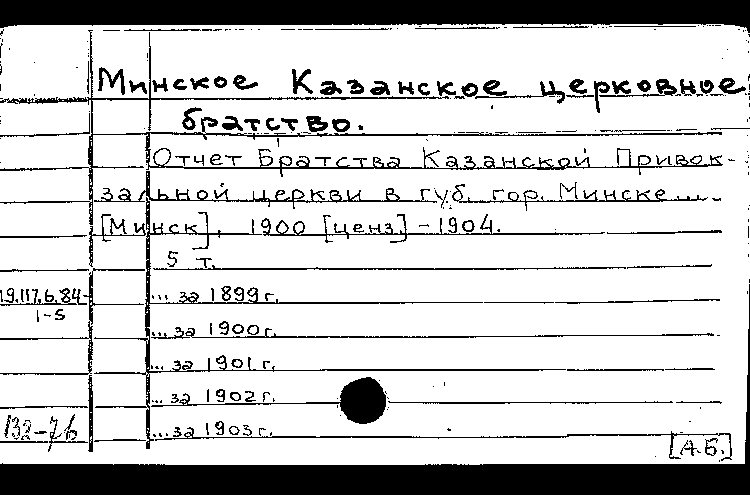 Минское Казанское церковное
братство.
Отчет Братства Казанской Привок-
зальной церкви в губ. гор. Минске ...
[Минск], 1900 [ценз.] - 1904.
5 т.
19.117.6.84- ... за 1899 г.
1-5
... за 1900 г.
... за 1901 г.
... за 1902 г.
132-76 ... за 1903 г.
[А.Б.]